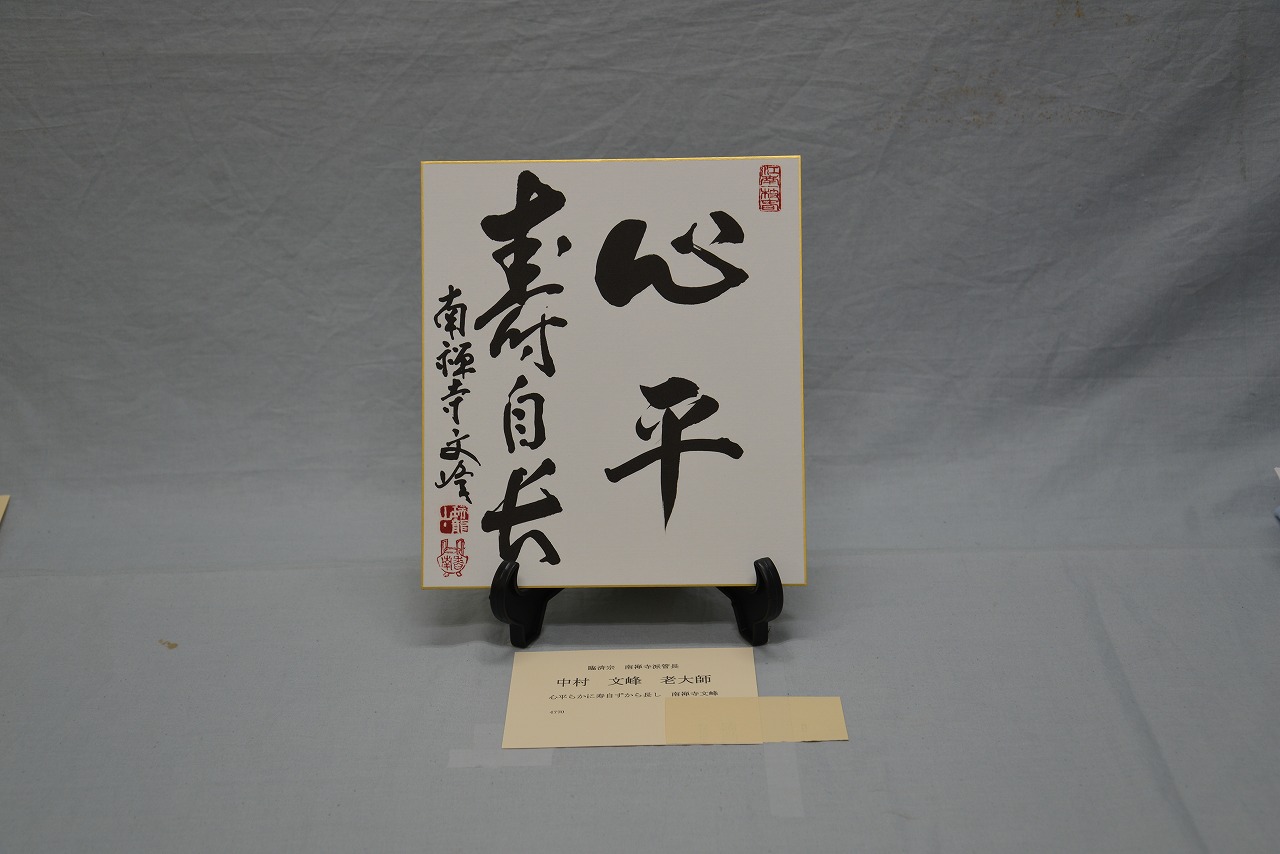 心平
寿自長
南禅寺文峰
臨済宗　南禅寺派管長
中村　文峰　老大師
心平らかに寿自ずから長し　南禅寺文峰
4770